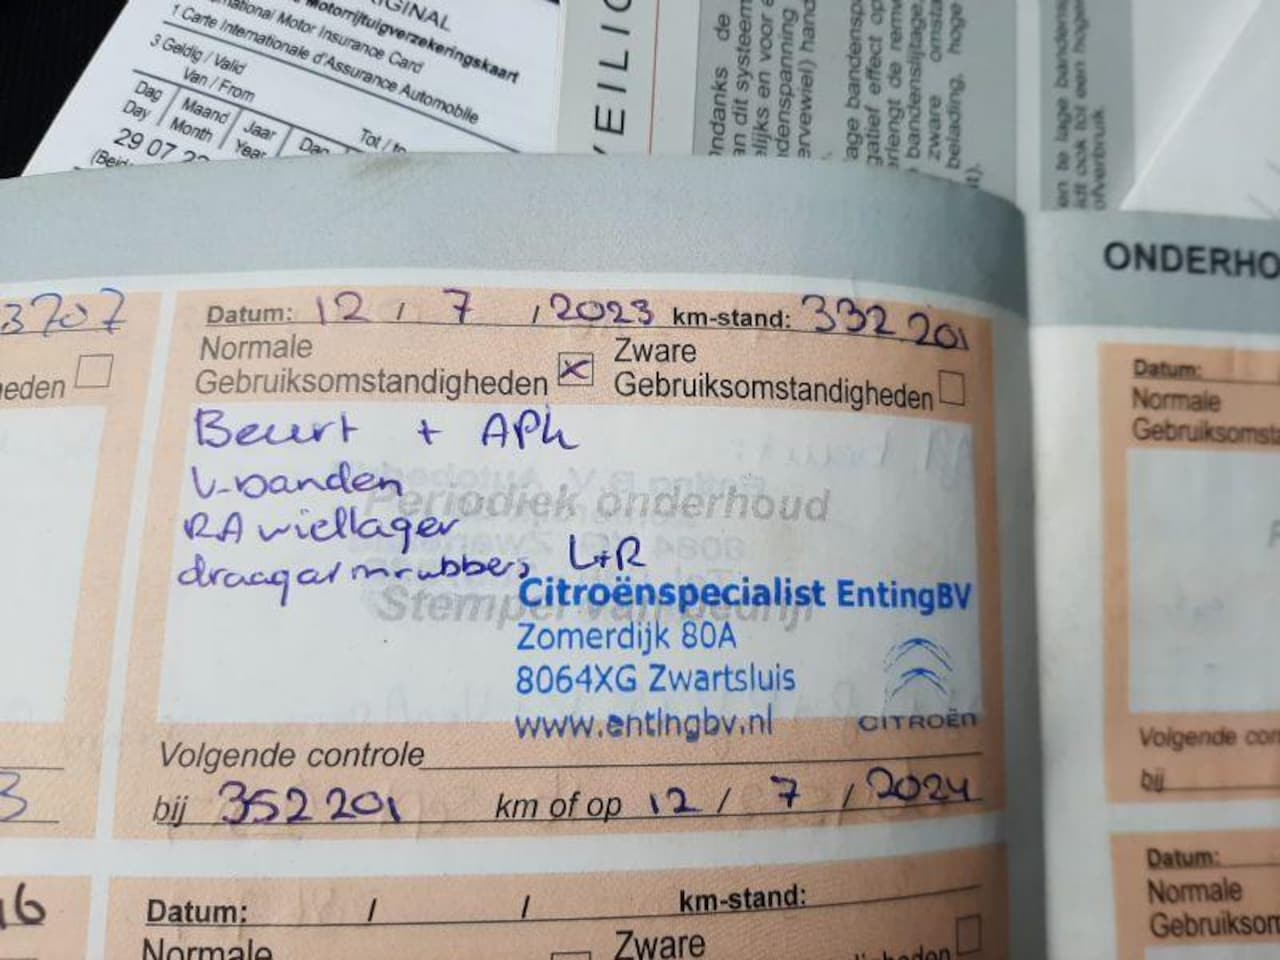 ORIGINAL
Motorrijtuigverzekeringskaart
International Motor Insurance Card
1 Carte Internationale d'Assurance Automobile
3 Geldig / Valid
Van / From
Tot / to
Dag Maand Jaar Dag
Day Month Year
29 07
VEILIG
ondanks de
an dit systeem
elijks en voor
denspanning
ervewiel) hand
age bandensp
gatief effect op
erlengt de remw
bandenslijtage,
zware omsta
belading, hoge
en te lage bandens
idt ook tot een hoger
ofverbruik.
3707
eden
3
16
Datum: 12 / 7 / 2023 km-stand: 332 201
Normale
Gebruiksomstandigheden x
Zware
Gebruiksomstandigheden
Beurt + APK
V-banden
RA wiellager
draagarmrubbers L+R
Periodiek onderhoud
Stempel van bedrijf
Citroënspecialist EntingBV
Zomerdijk 80A
8064XG Zwartsluis
www.entingbv.nl
CITROËN
Volgende controle
bij 352 201 km of op 12 / 7 / 2024
Datum: / / km-stand:
Normale
Zware
ONDERHO
Datum:
Normale
Gebruiksomst
Volgende con
bij
Datum:
Normale
Gebruiksom